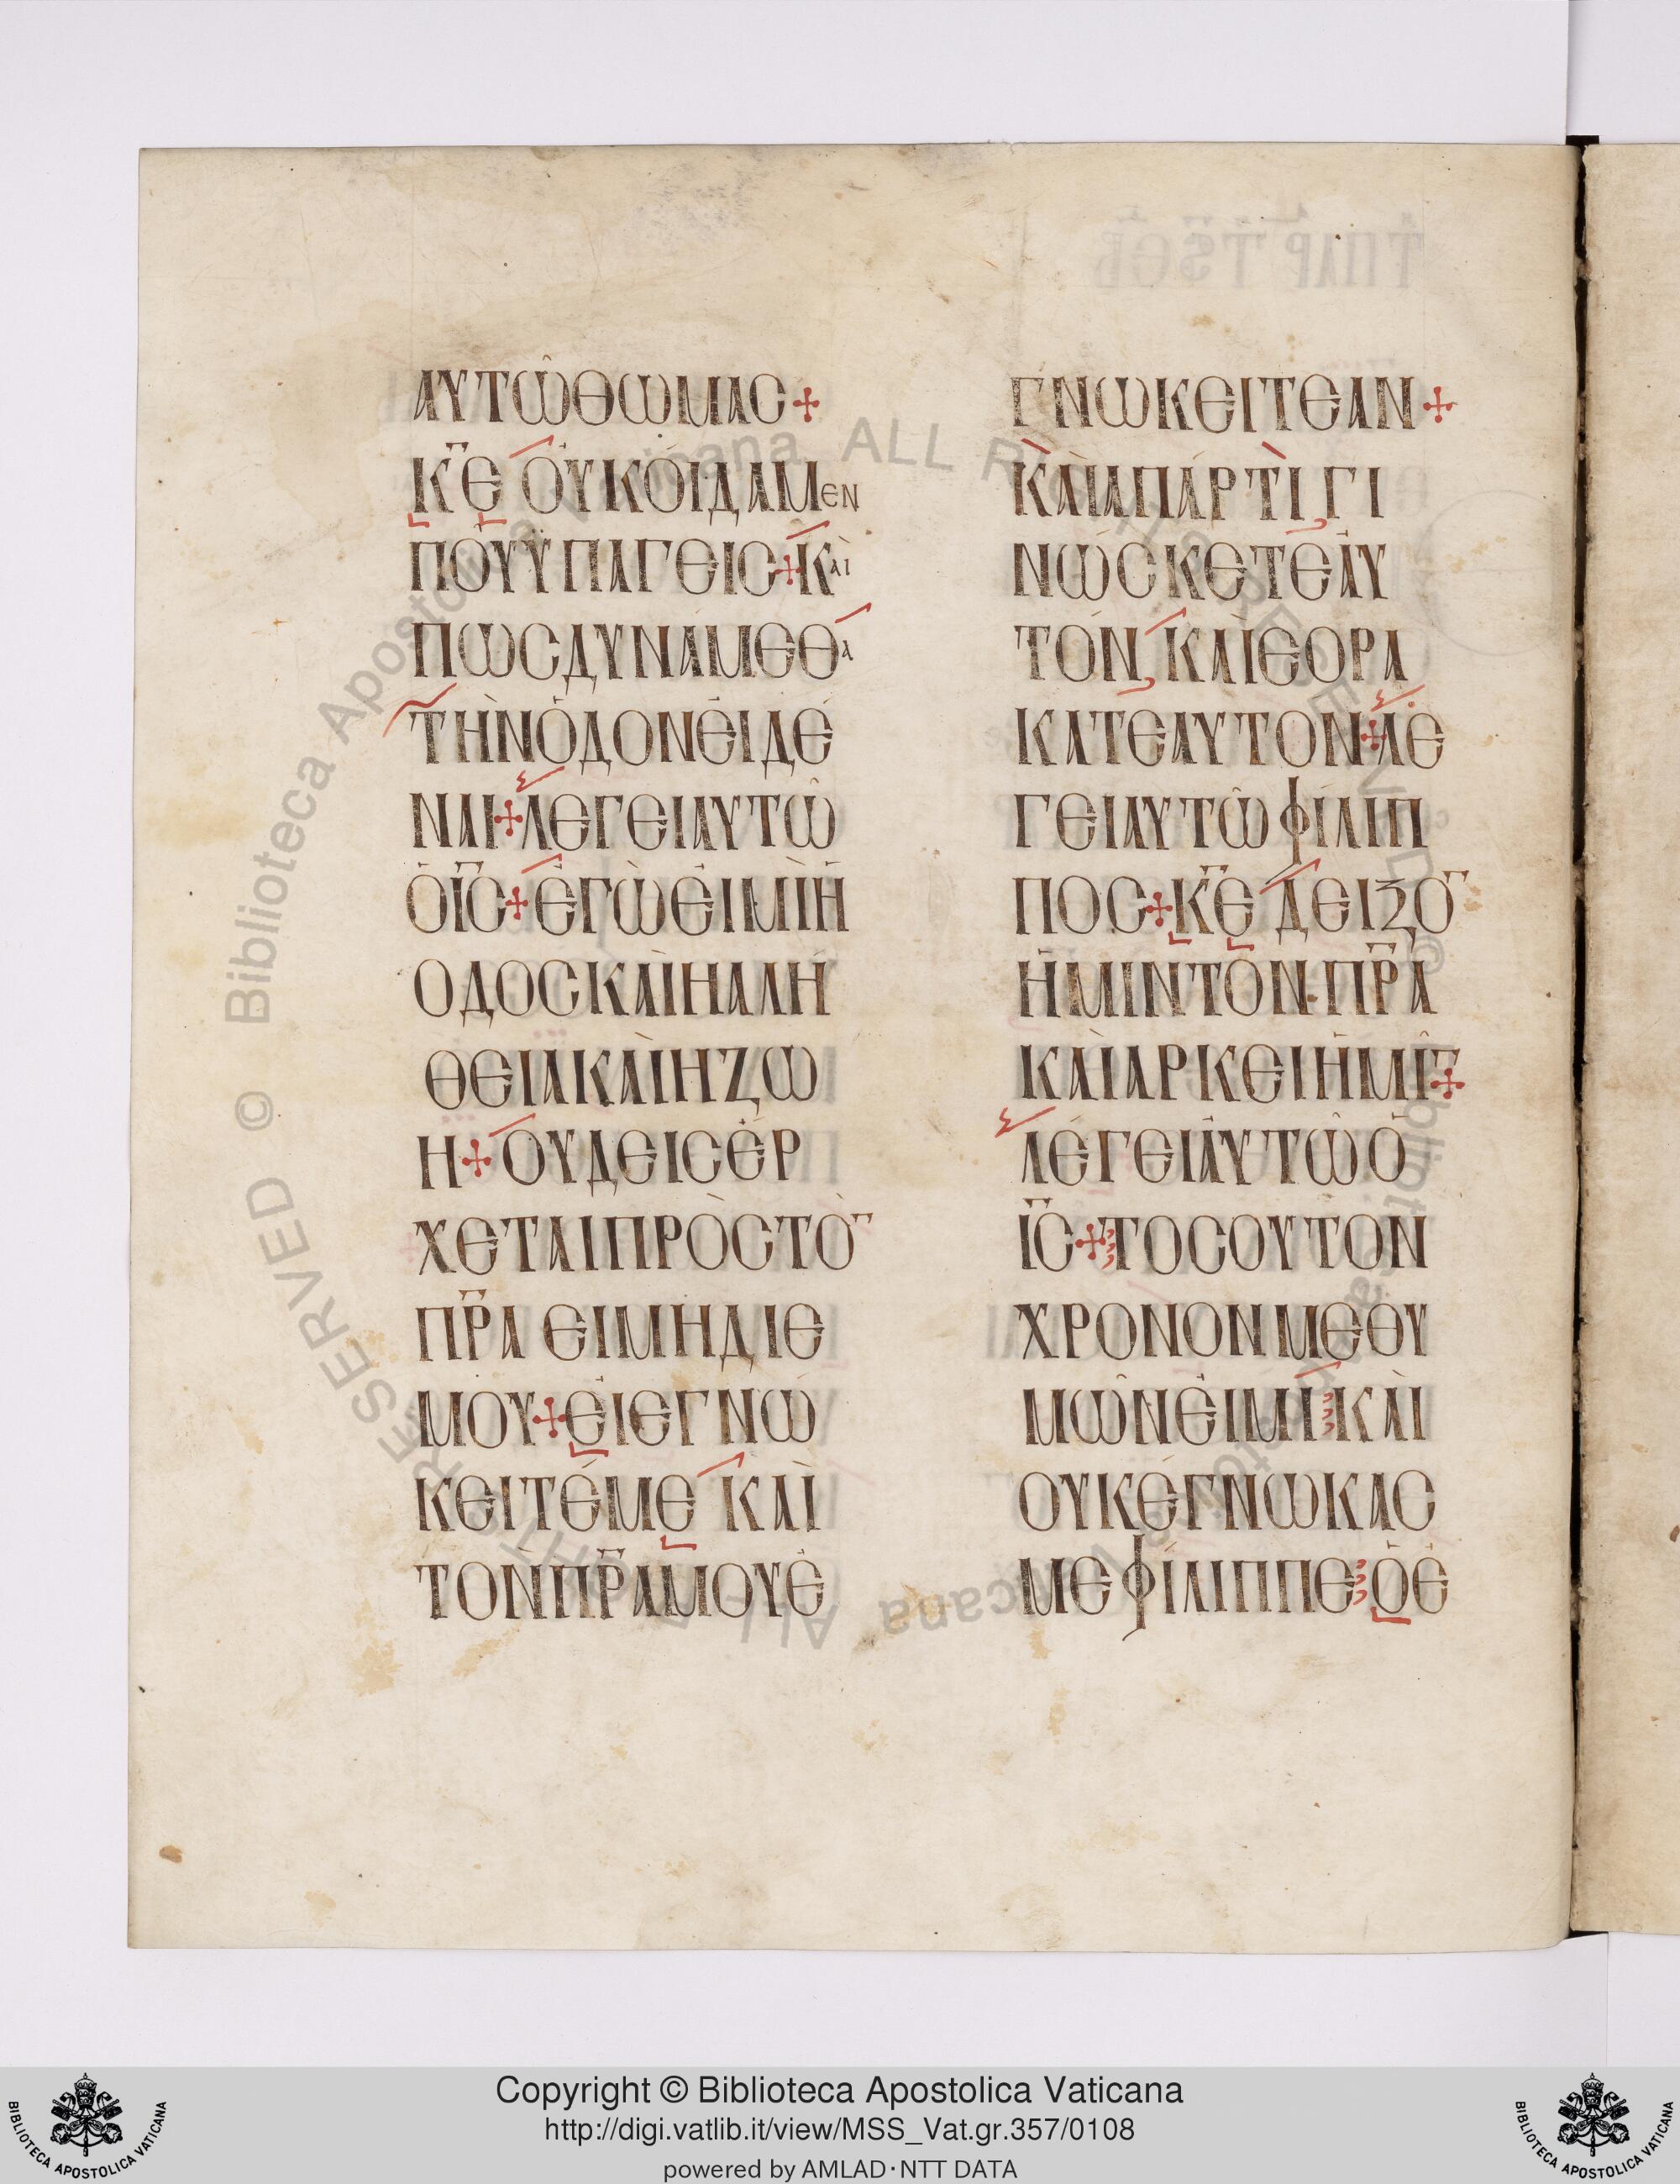 ΑΥΤΩ̑ΘΩΜΑС+
Κ̅Ε̅ ΟΥΚΟΙΔΑΜΕΝ
ΠΟΥΥΠΑΓΕΙС+ΚΑΙ
ΠΩСΔΥΝΑΜΕΘΑ
ΤΗΝΟΔΟΝΕΙΔΕ
ΝΑΙ+ΛΕΓΕΙΑΥΤΩ̑
ΟΙ̅С̅+ΕΓΩΕΙΜΙΗ
ΟΔΟСΚΑΙΗΑΛΗ
ΘΕΙΑΚΑΙΗΖΩ
Η+ΟΥΔΕΙСΕΡ
ΧΕΤΑΙΠΡΟСΤΟ̅
Π̅Ρ̅Α ΕΙΜΗΔΙΕ
ΜΟΥ+ΕΙΕΓΝΩ
ΚΕΙΤΕΜΕ ΚΑΙ
ΤΟΝΠ̅Ρ̅ΑΜΟΥΕ
ΓΝΩΚΕΙΤΕΑΝ+
ΚΑΙΑΠΑΡΤΙ,ΓΙ
ΝΩСΚΕΤΕΑΥ
ΤΟΝ,ΚΑΙΕΟΡΑ
ΚΑΤΕΑΥΤΟΝ+ΛΕ
ΓΕΙΑΥΤΩ̑ΦΙΛΙΠ
ΠΟС+Κ̅Ε̅ ΔΕΙΞΟ̅
ΗΜΙΝΤΟΝ·Π̅Ρ̅Α
ΚΑΙΑΡΚΕΙΗΜΙ̅+
ΛΕΓΕΙΑΥΤΩ̑Ο
Ι̅С̅+ΤΟСΟΥΤΟΝ
ΧΡΟΝΟΝΜΕΘΥ
ΜΩΝΕΙΜΙ ΚΑΙ
ΟΥΚΕΓΝΩΚΑС
ΜΕΦΙΛΙΠΠΕ ΟΕ
© Biblioteca Apostolica Vaticana ALL RIGHTS RESERVED
© Biblioteca Apostolica Vaticana ALL RIGHTS RESERVED
Copyright © Biblioteca Apostolica Vaticana
http://digi.vatlib.it/view/MSS_Vat.gr.357/0108
powered by AMLAD·NTT DATA
BIBLIOTECA APOSTOLICA VATICANA
BIBLIOTECA APOSTOLICA VATICANA